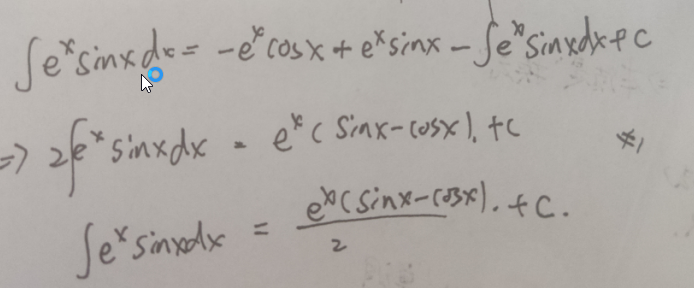 ∫e^x sinx dx = -e^x cosx + e^x sinx - ∫e^x sinxdx + c
=> 2∫e^x sinxdx = e^x ( sinx-cosx). +c *1
∫e^x sinxdx = e^x(sinx-cosx)/2 . +c.